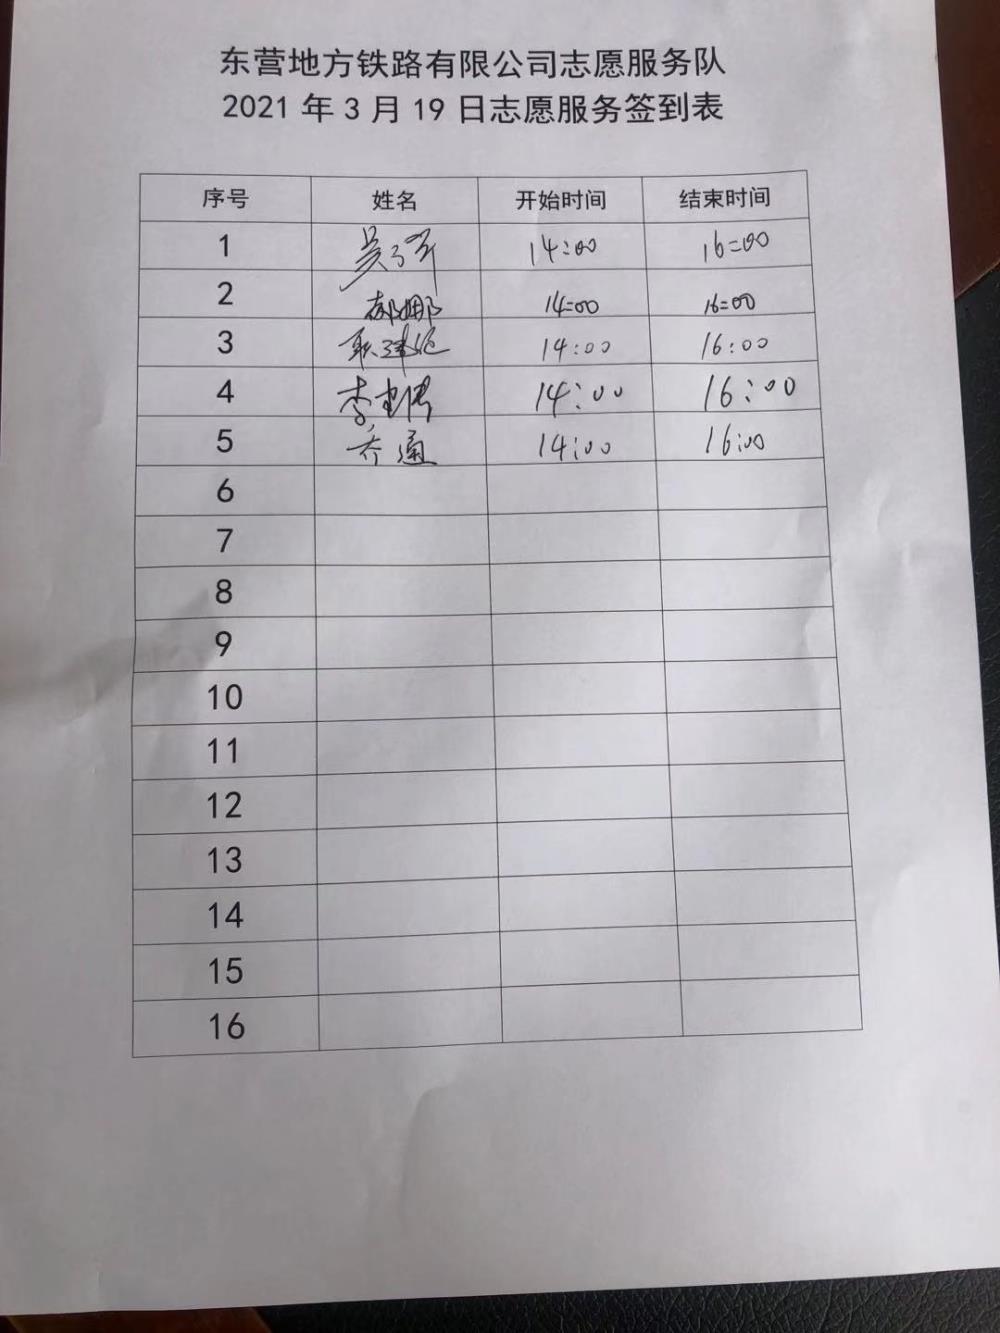 东营地方铁路有限公司志愿服务队
2021 年 3 月 19 日志愿服务签到表
序号 姓名 开始时间 结束时间
1 14:00 16:00
2 郝娜 14:00 16:00
3 14:00 16:00
4 李 14:00 16:00
5 乔通 14:00 16:00
6
7
8
9
10
11
12
13
14
15
16